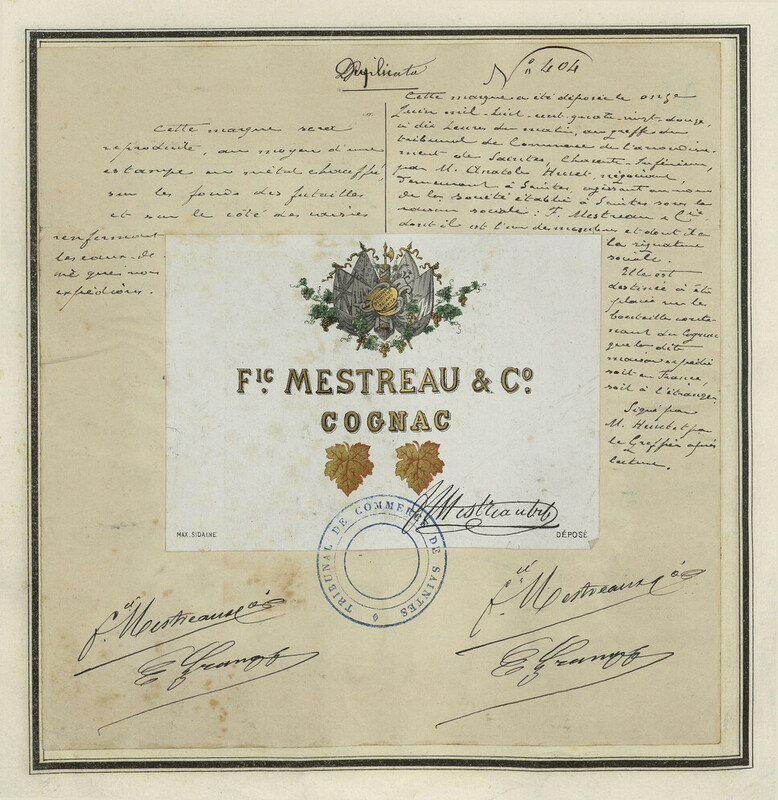 Duplicata
N° 404
Cette marque sera
reproduite, au moyen d'une
estampe en métal chauffé,
sur les fonds des futailles
et sur le côté des caisses
renfermant
les eaux-de-
vie que nous
expédions.
Cette marque a été déposée le onze
Juin mil-huit-cent-quatre-vingt-douze,
à dix heures du matin, au greffe du
tribunal de Commerce de l'arrondisse-
ment de Saintes, Charente-Inférieure,
par M. Anatole négociant,
demeurant à Saintes, agissant au nom
de la société établie à Saintes sous la
raison sociale: F. Mestreau & Cie
dont il est l'un des membres et dont il a
la signature
sociale.
Elle est
destinée à être
placée sur la
bouteille conte-
nant du Cognac
que la dite
maison expédie
soit en France,
soit à l'étranger.
Signé par
M. et par
le Greffier après
lecture.
FIC. MESTREAU & CO.
COGNAC
F. Mestreau & Cie
MAX. SIDAINE
DÉPOSÉ
TRIBUNAL DE COMMERCE DE SAINTES
F. Mestreau & Cie
F. Mestreau & Cie